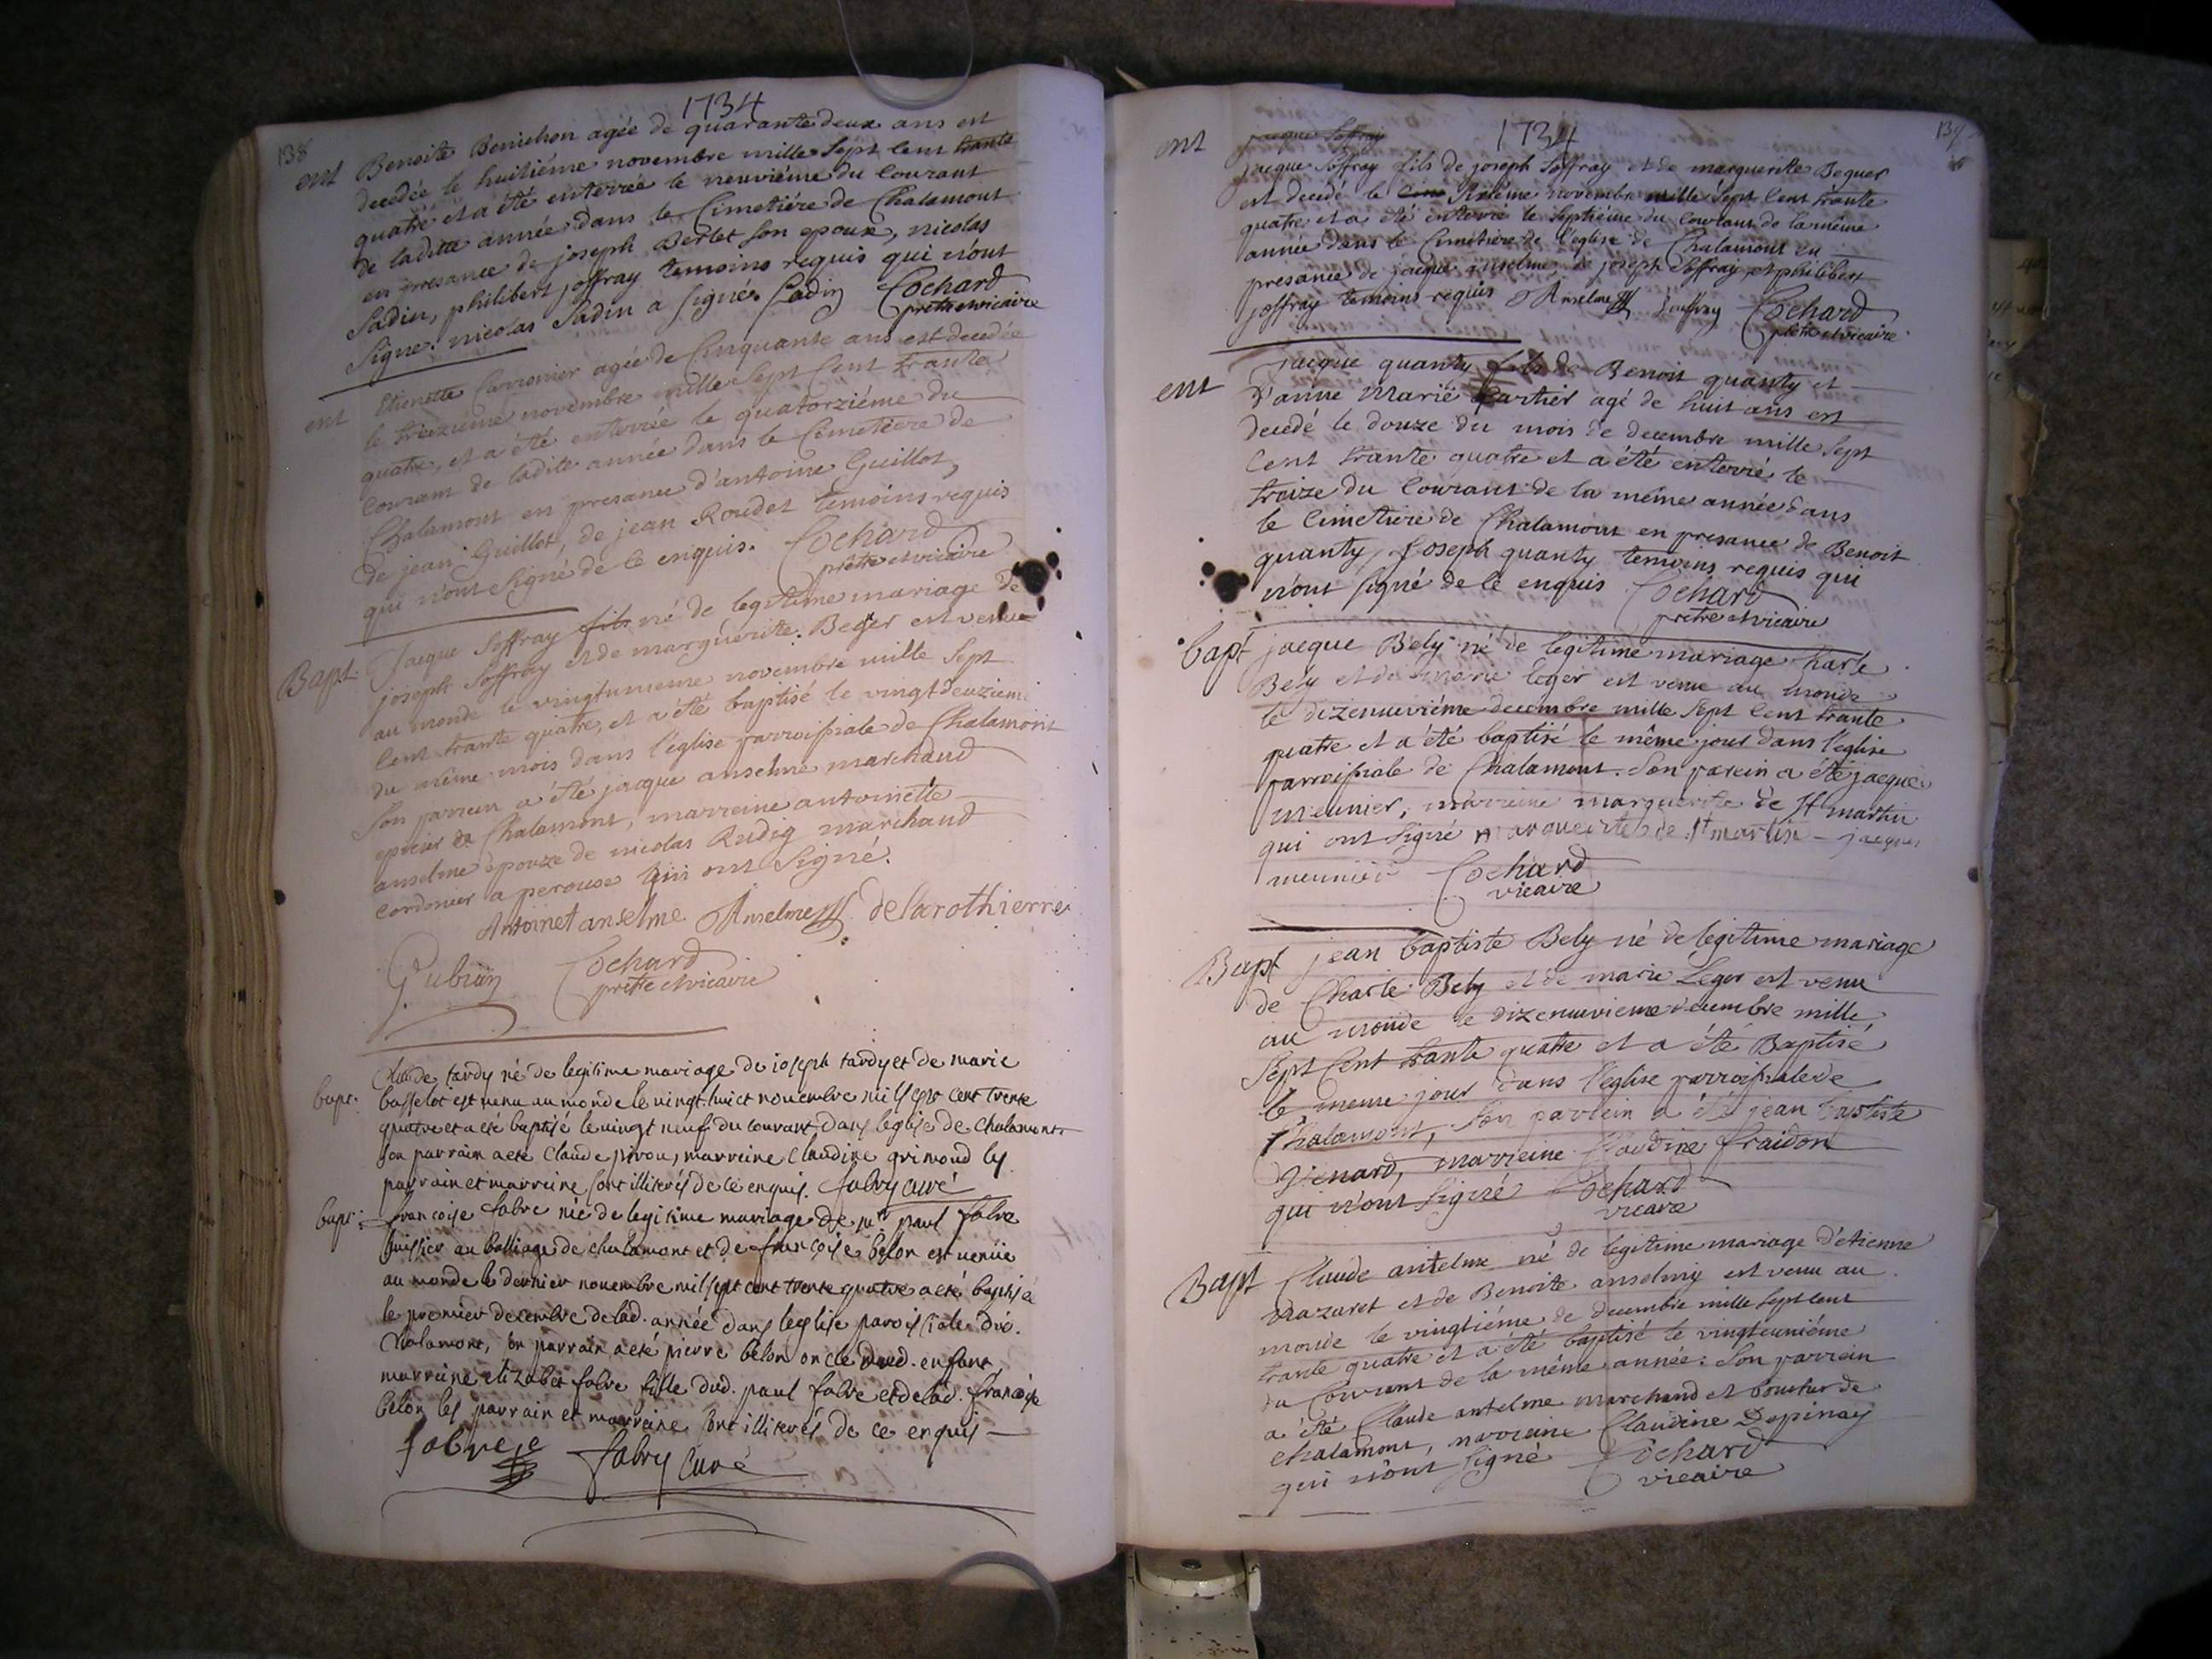 1734
138
ent Benoite Benichon agée de quarante deux ans est
decedée le huitiéme novembre mille sept cent trante
quatre et a été enterrée le neuviéme du courant
de laditte année dans le Cimetiére de Chalamont
en presance de joseph Berlet son epoux, nicolas
Sadin, philibert joffray temoins requis qui n'ont
signé. nicolas Sadin a signé. Sadin Cochard
prêtre et vicaire
ent Etienette Carronier agée de Cinquante ans est decedée
le treizieme novembre mille sept cent trante
quatre, et a été enterrée le quatorziéme du
courant de ladite année dans le Cimetiere de
Chalamont en presance d'antoine Guillot,
de jean Guillot, de jean Roudet temoins requis
qui n'ont signé de ce enquis. Cochard
prêtre et vicaire
Bapt. Jacque Soffray fils né de legitime mariage de
joseph Soffray et de marguerite Beger est venu
au monde le vingtunieme novembre mille sept
cent trante quatre, et a été baptisé le vingtdeuziem
du même mois dans l'église parroissiale de Chalamont
son parrein a été jacque anselme marchand
epicier de Chalamont, marreine antoinette
anselme epouze de nicolas Rudig marchand
cordonier a perouse qui ont signé.
Antoinet anselme Anselme delarothierre
Gubian Cochard
prêtre et vicaire
Claude tardy né de legitime mariage de ioseph tardy et de marie
bapt. basselot est venu au monde le vingt huict novembre mil sept cent trente
quatre et a eté baptisé le vingt neuf du courant dans leglise de Chalamont
son parrain a eté Claude pirou, marreine Claudine grimoud les
parrain et marreine sont illiterés de ce enquis. fabry curé
bapt: francoise fabre née de legitime mariage de me paul fabre
huissier au balliage de chalamont et de françoise belon est venüe
au monde le dernier novembre mil sept cent trente quatre a eté baptisée
le premier decembre de lad. année dans leglise paroissiale dud.
Chalamont, son parrain a eté pierre belon oncle dud. enfant,
marreine elizabet fabre fille dud. paul fabre et de lad. françoise
belon les parrain et marreine sont illiterés de ce enquis
fabre fabry Curé
1734
139
ent jacque Soffray
jacque Soffray fils de joseph Soffray et de marguerite Beguer
est decedé le Sixiéme novembre mille sept cent trante
quatre et a été enterré le septiéme du courant de la même
année dans le Cimetiere de l'eglise de Chalamont en
presance de jacque anselme, de joseph Soffray et philibert
joffray temoins requis Anselme Souffray Cochard
prêtre et vicaire
ent jacque quanty fils de Benoit quanty et
d'anne Marie Cartier agé de huit ans est
decedé le douze du mois de decembre mille sept
cent trante quatre et a été enterré le
traize du courant de la même année dans
le Cimetiere de Chalamont en presance de Benoit
quanty, Joseph quanty temoins requis qui
n'ont signé de ce enquis Cochard
prêtre et vicaire
bapt jacque Bely né de legitime mariage Charle
Bely et de marie leger est venu au monde
le dizenuviéme decembre mille sept cent trante
quatre et a été baptisé le même jour dans l'eglise
parroissiale de Chalamont. Son parein a été jacque
meunier, marreine marguerite de St martin
qui ont signé marguerite de St martin jacques
meunier Cochard
vicaire
Bapt jean baptiste Bely né de legitime mariage
de Charle Bely et de marie Leger est venu
au monde le dizenuvieme decembre mille
sept cent trante quatre et a été Baptisé
le meme jour dans l'eglise parroissiale de
Chalamont, son parrein a été jean baptiste
Gienard, marreine Claudine fraidon
qui n'ont signé Cochard
vicare
Bapt Claude antelme né de legitime mariage d'etienne
Mazaret et de Benoite anselmy est venu au
monde le vingtiéme de decembre mille sept cent
trante quatre et a été baptisé le vingteuniéme
du courant de la même année. Son parrein
a été Claude antelme marchand et boucher de
chalamont, marreine Claudine Depinay
qui n'ont signé Cochard
vicaire